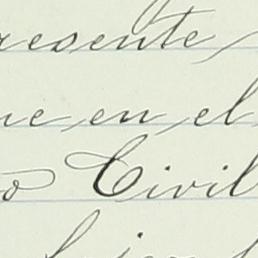 resente
ue en el
o Civil